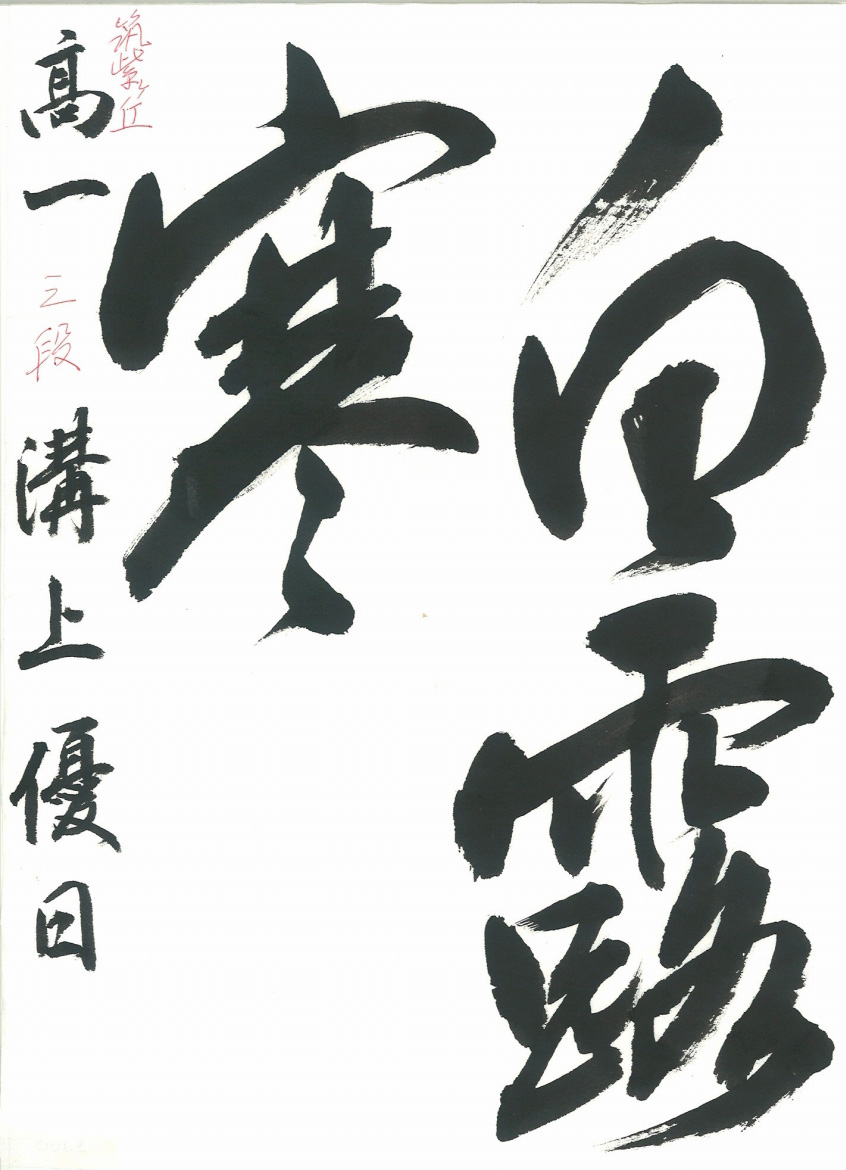 白露
寒
筑紫ヶ丘
高一 三段 溝上優日